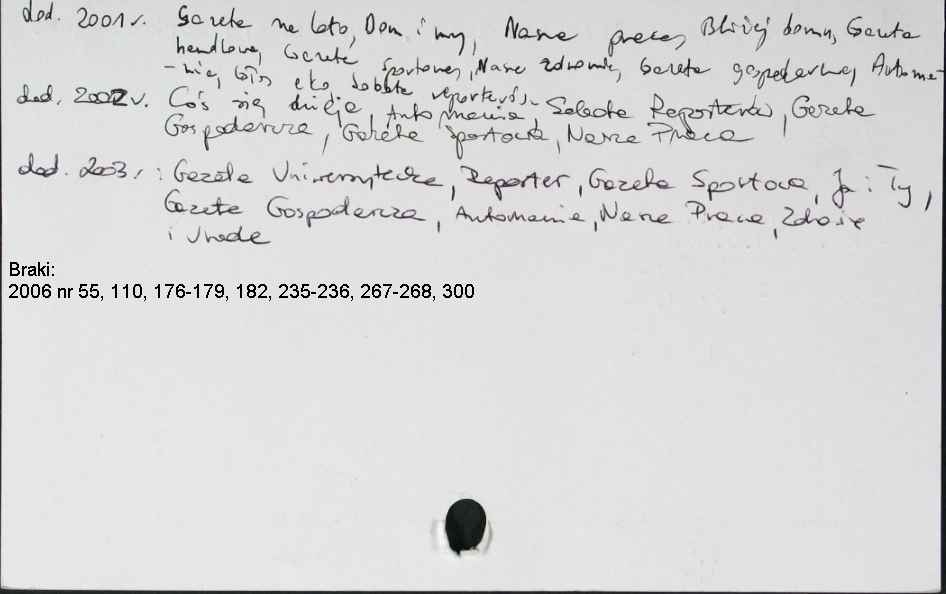 dod. 2001 r. Gazeta na lato, Dom i my, Nasza praca, Bliżej domu, Gazeta
handlowa, Gazeta sportowa, Nasze zdrowie, Gazeta gospodarcza, Automa-
-nia, Głos eko, Sobota reporterów
dod. 2002 r. Coś się dzieje, Automania, Sobota Reporterów, Gazeta
Gospodarcza, Gazeta Sportowa, Nasza Praca
dod. 2003 r. : Gazeta Uniwersytecka, Reporter, Gazeta Sportowa, Ja i Ty,
Gazeta Gospodarcza, Automania, Nasza Praca, Zdrowie
i Uroda
Braki:
2006 nr 55, 110, 176-179, 182, 235-236, 267-268, 300